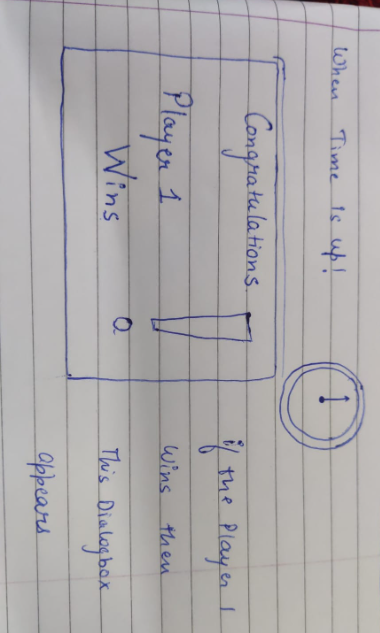 When Time is up!
Congratulations
Player 1
Wins
if the Player 1
wins then
This Dialogbox
appears